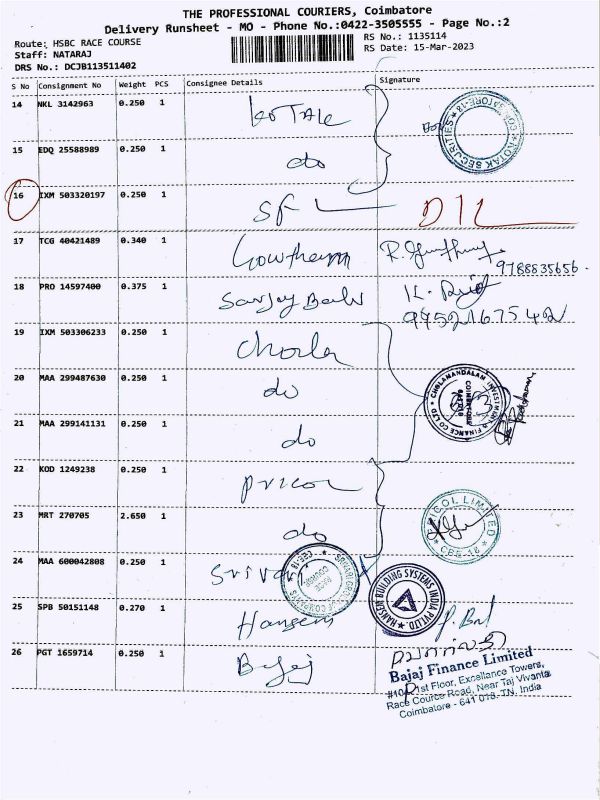 THE PROFESSIONAL COURIERS, Coimbatore
Delivery Runsheet - MO - Phone No.:0422-3505555 - Page No.:2
Route: HSBC RACE COURSE
Staff: NATARAJ
DRS No.: DCJB113511402
RS No.: 1135114
RS Date: 15-Mar-2023
S No Consignment No Weight PCS Consignee Details Signature
14 NKL 3142963 0.250 1 KOTAK
KOTAK SECURITIES
15 EDQ 25588989 0.250 1 do
16 IXM 503320197 0.250 1 SF DIL
17 TCG 40421489 0.340 1 Gowtham R.
9788835656.
18 PRO 14597400 0.375 1 Sanjay K.
9952167542
19 IXM 503306233 0.250 1 Chola
20 MAA 299487630 0.250 1 do
CHOLAMANDALAM INVESTMENT & FINANCE CO LTD
COIMBATORE
21 MAA 299141131 0.250 1 do
22 KOD 1249238 0.250 1 pricol
23 MRT 270705 2.650 1 do
PRICOL LIMITED
CBE-18
24 MAA 600042808 0.250 1 Srivari
HANSEN BUILDING SYSTEMS INDIA PVT LTD
25 SPB 50151148 0.270 1 Hansen
26 PGT 1659714 0.250 1 Bajaj
Bajaj Finance Limited
1st Floor, Excellance Towers,
Race Cource Road, Near Taj Vivanta
Coimbatore - 641 018. TN. India